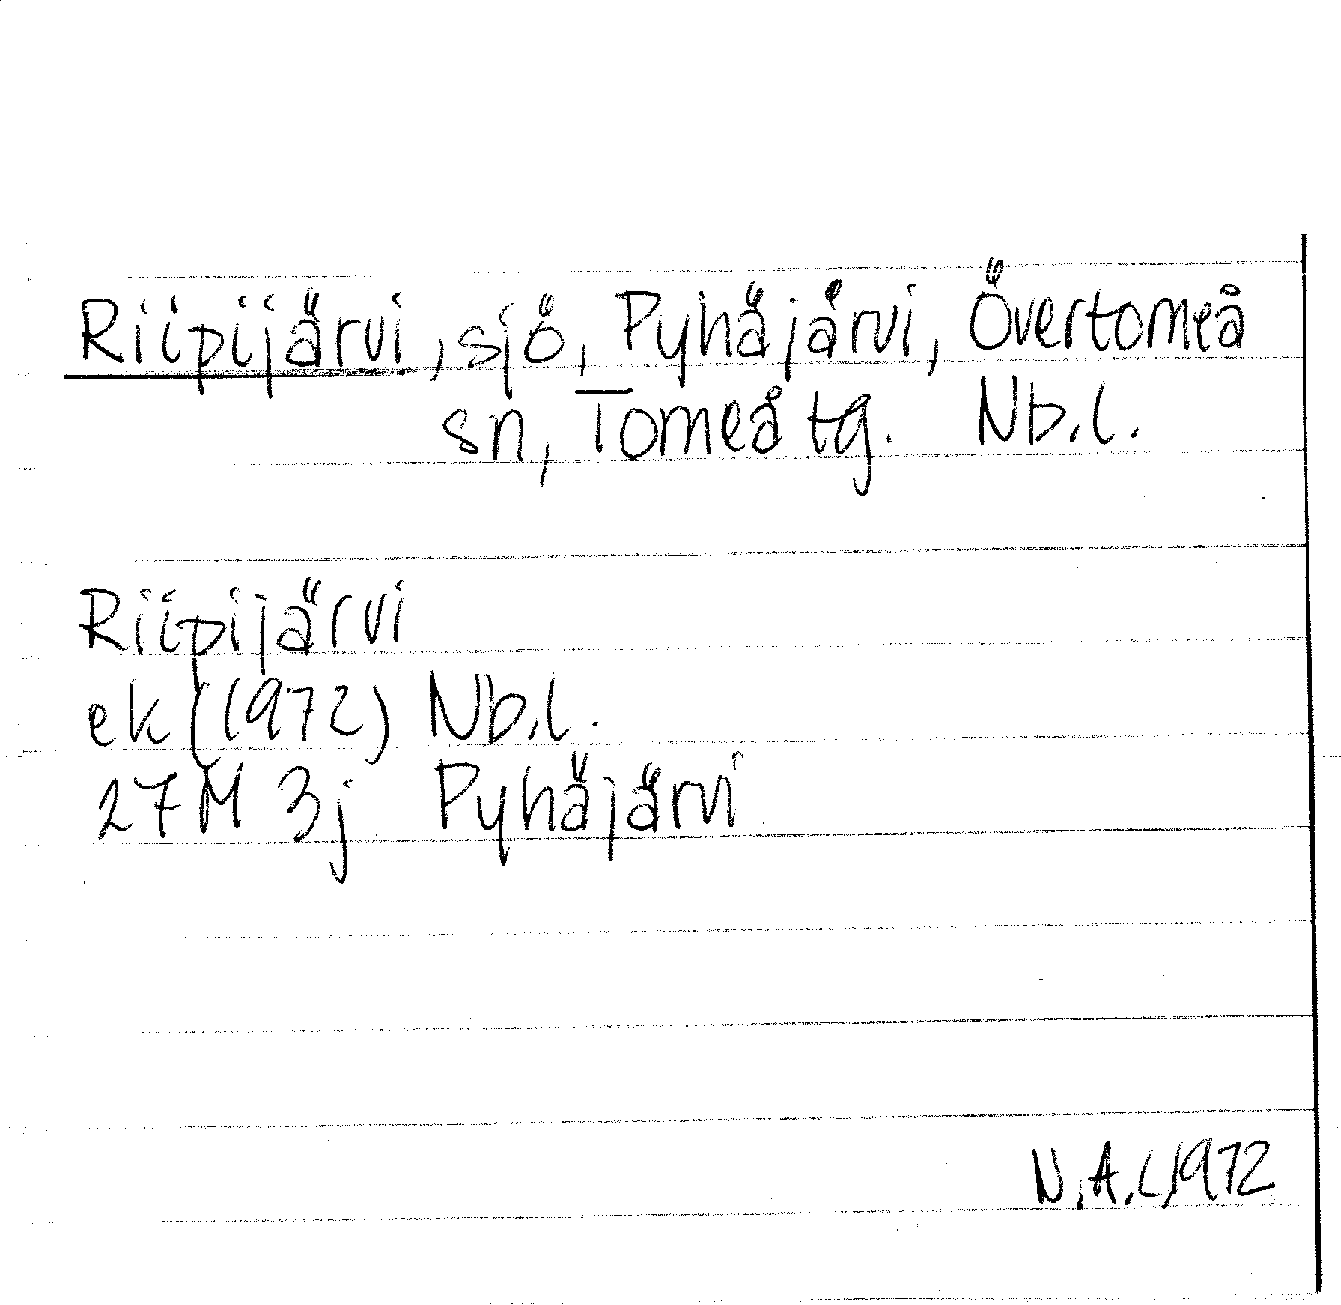 Riipijärvi, sjö, Pyhäjärvi, Övertorneå
sn, Torneå tg. Nb.l.
Riipijärvi
ek (1972) Nb.l.
27M 3j Pyhäjärvi
N.A.L 1972